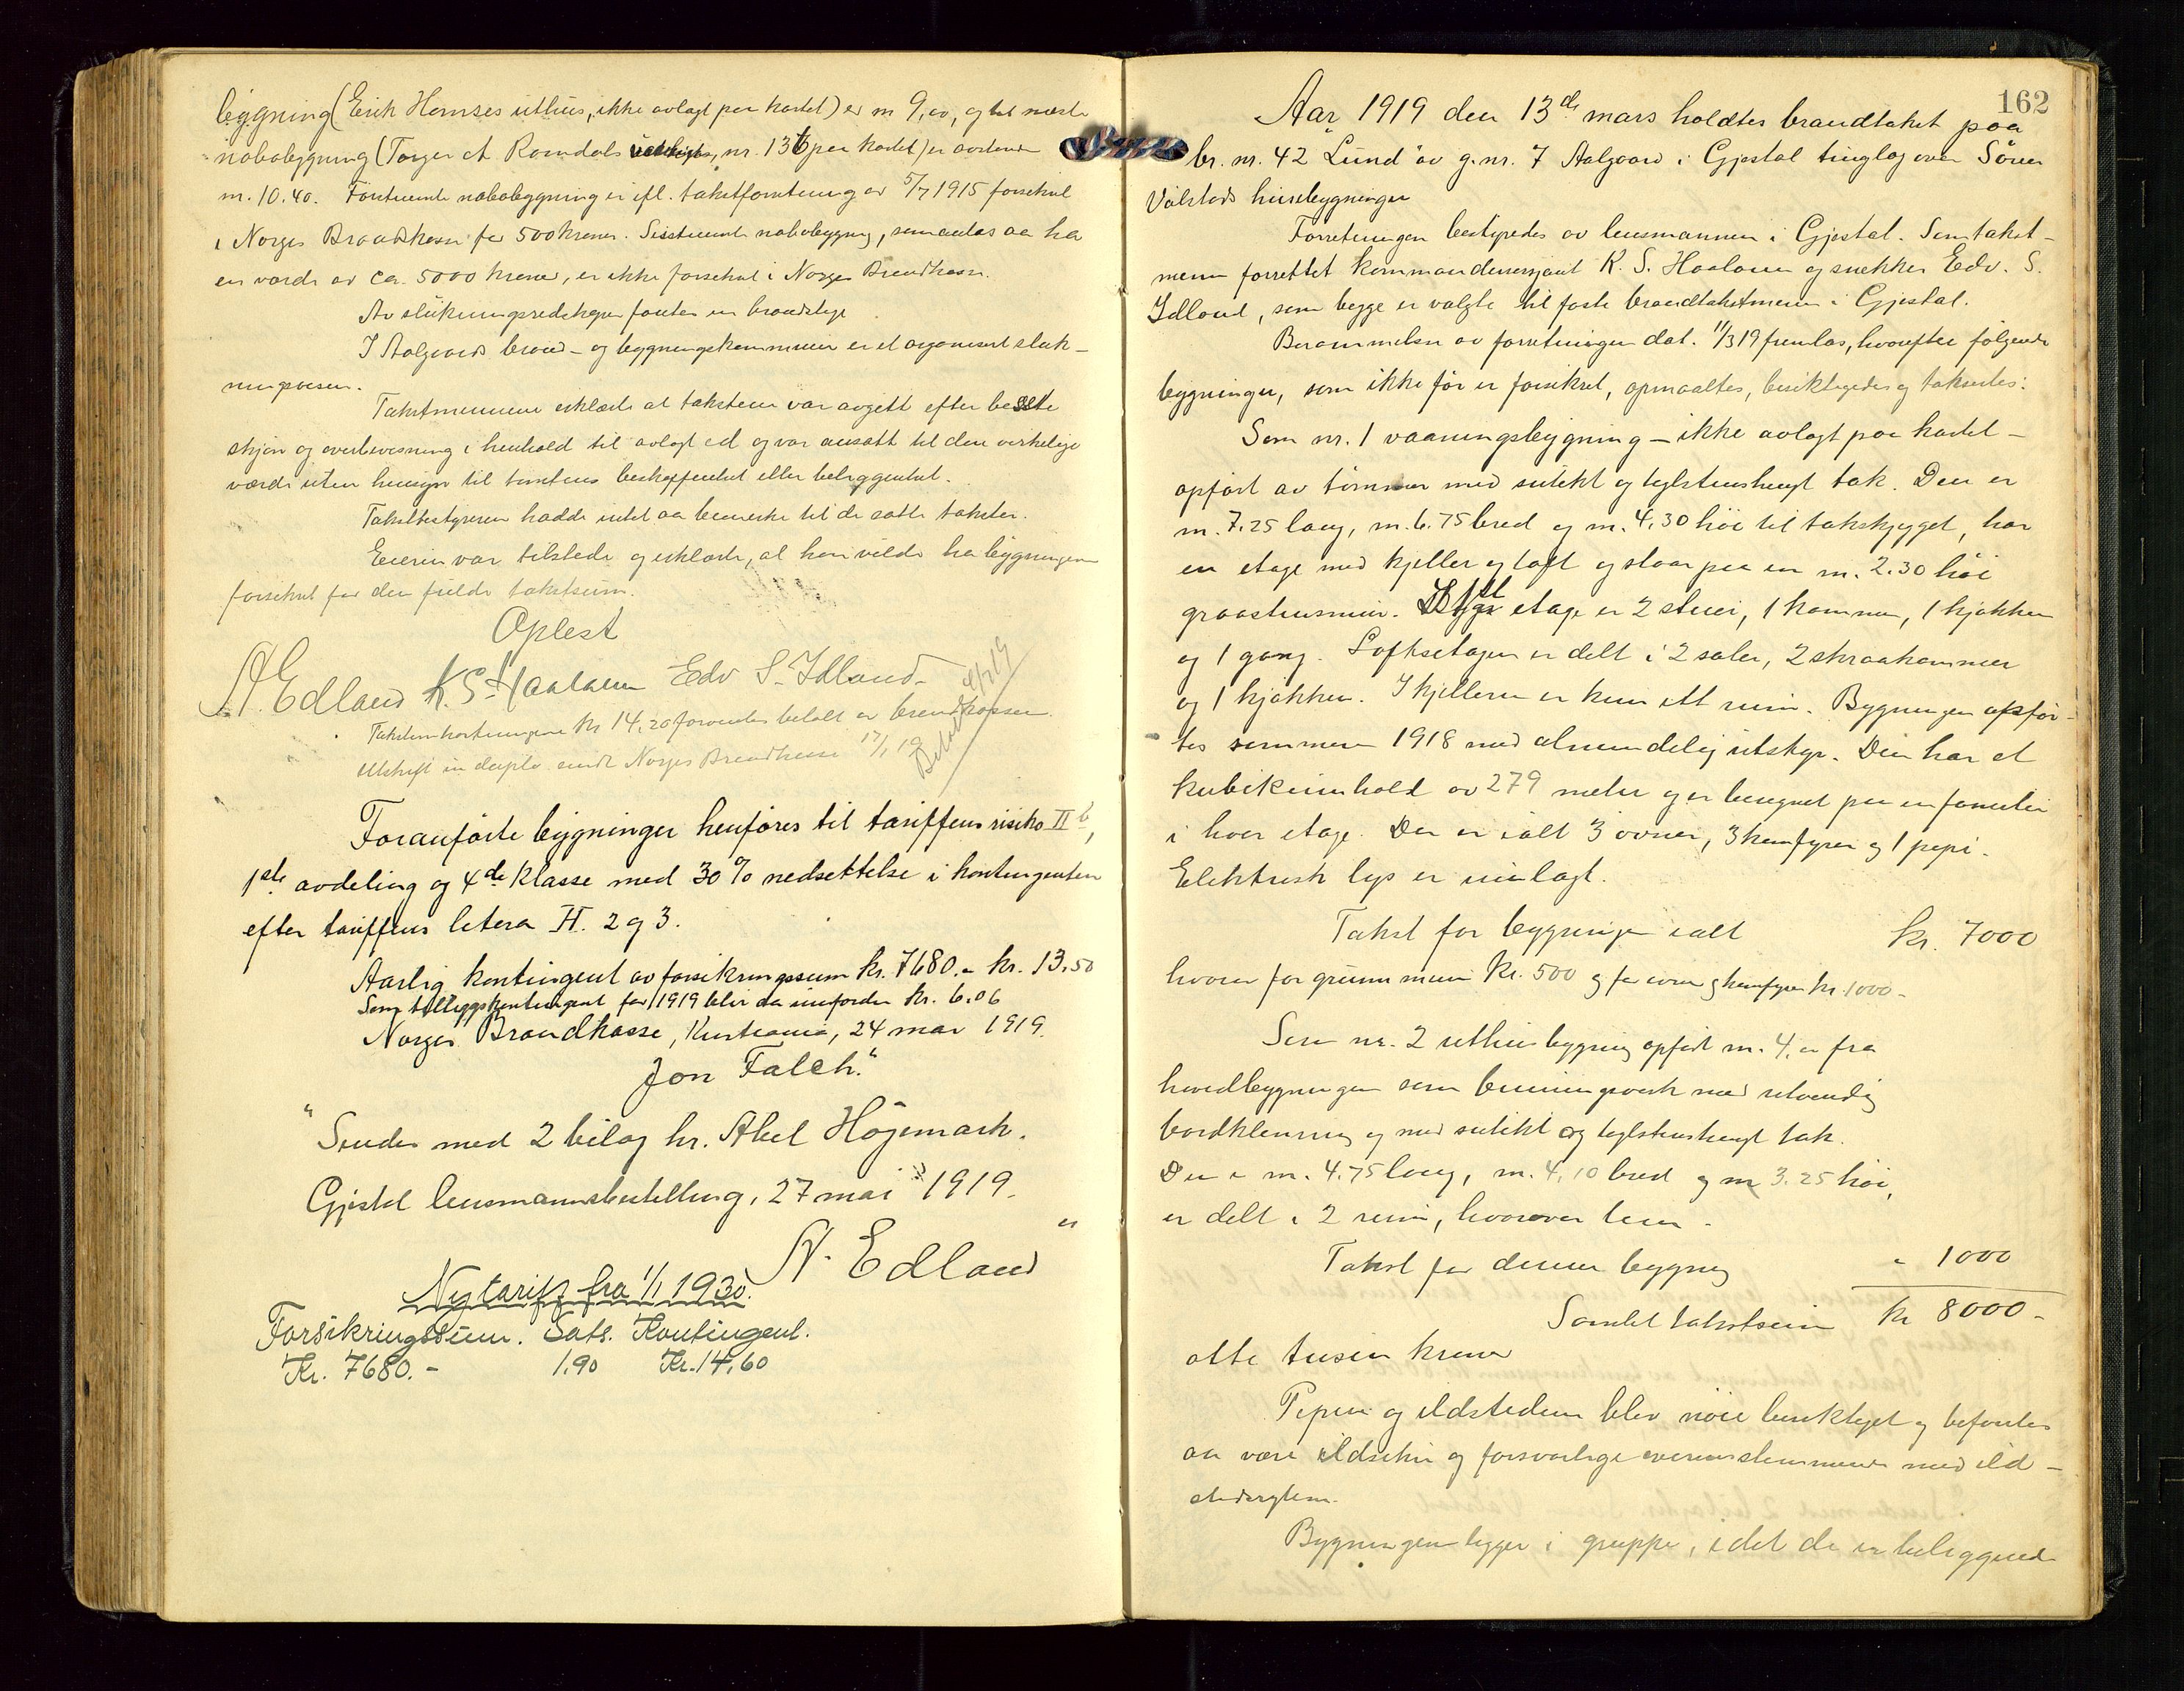 bygning (Erik Homses uthus, ikke avlagt paa kartet) er m 9,00, og det næste
nabobygning (Torger A. Romdals, nr. 136 paa kartet) er avstanden
m. 10.40. Førstnevnte nabobygning er ifl. takstforretning av 5/7 1915 forsikret
i Norges Brandkasse for 500 kroner. Sistnevnte nabobygning, som antas aa ha
en værdi av ca. 5000 kroner, er ikke forsikret i Norges Brandkasse.
Av slukningsredskaper fantes en brandstige
I Aalgaards brand- og bygningskommune er et organisert sluk-
ningsvæsen.
Takstmennene erklærte at taksten var avgitt efter beste
skjøn og overbevisning i henhold til avlagt ed og var ansatt til den virkelige
værdi uten hensyn til tomtens beskaffenhet eller beliggenhet.
Takstbestyreren hadde intet aa bemerke til de satte takster.
Eieren var tilstede og erklærte, at han vilde ha bygningene
forsikret for den fulde takstsum.
Oplest
A. Edland K. S. Haaland Edv S. Idland
Takstomkostningene kr 14,20 forventes betalt av brandkassen.
Utskrift in duplo sendt Norges Brandkasse 17/1 19
Betalt 4/3 19
Foranførte bygninger henføres til tariffens risiko II b,
1ste avdeling og 4de klasse med 30% nedsettelse i kontingenten
efter tariffens litera H. 2 og 3.
Aarlig kontingent av forsikringssum kr. 7680.- kr. 13.50
Som tilleggskontingent for 1919 blir da innfordre kr. 6.06
Norges Brandkasse, Kristiania, 24 mar 1919.
Jon Falch."
"Sendes med 2 bilag hr. Abel Högemark.
Gjestal lensmannsbestilling, 27 mai 1919.
A. Edland"
Ny tariff fra 1/1 1930.
Forsikringssum. Sats. Kontingent.
Kr. 7680.- 1.90 Kr. 14,60
162
Aar 1919 den 13de mars holdtes brandtakst paa
br. nr. 42 "Lund" av g. nr. 7 Aalgaard i Gjestal tinglag over Sören
Valstads husebygninger
Forretningen bestyredes av lensmannen i Gjestal. Som takst-
menn forrettet kommandersersjant K. S. Haaland og snekker Edv. S.
Idland, som begge er valgte til faste brandtakstmenn i Gjestal.
Berammelse av forretningen dat. 11/3 19 fremlas, hvorefter følgende
bygninger, som ikke før er forsikret, opmaaltes, besiktigedes og taksertes:
Som nr. 1 vaaningsbygning - ikke avlagt paa kartet -
opført av tømmer med sutekt og teglstenshengt tak. Den er
m. 7.25 lang, m. 6.75 bred og m. 4.30 høi til takskjægget, har
en etage med kjeller og loft og staar paa en m. 2.30 høi
graastensmur. I 1st etage er 2 stuer, 1 kammer, 1 kjøkken
og 1 gang. Loftsetagen er delt i 2 saler, 2 skraakammer
og 1 kjøkken. I kjelleren er kun ett rum. Bygningen opfør-
tes sommeren 1918 med almindelig utstyr. Den har et
kubikinnhold av 279 meter og er beregnet paa en familie
i hver etage. Der er ialt 3 ovner, 3 komfyrer og 1 pipe.
Elektrisk lys er innlagt.
Takst for bygningen ialt kr. 7000
hvorav for grunnmuren kr. 500 og for ovner og komfyrer kr. 1000-
Som nr. 2 uthusbygning opført m. 4,00 fra
hovedbygningen som bindingsverk med utvendig
bordklening og med sutekt og teglstenshengt tak.
Den er m. 4.75 lang, m. 4,10 bred og m 3.25 høi,
er delt i 2 rum, hvorover lem.
Takst for denne bygning " 1000
Samlet takstsum kr 8000-
otte tusen kroner
Pipen og ildstedene blev nøie besiktiget og befantes
aa være ildsikre og forsvarlige overensstemmende med ild-
stedsreglem.
Bygningene ligger i gruppe, idet de er beliggende